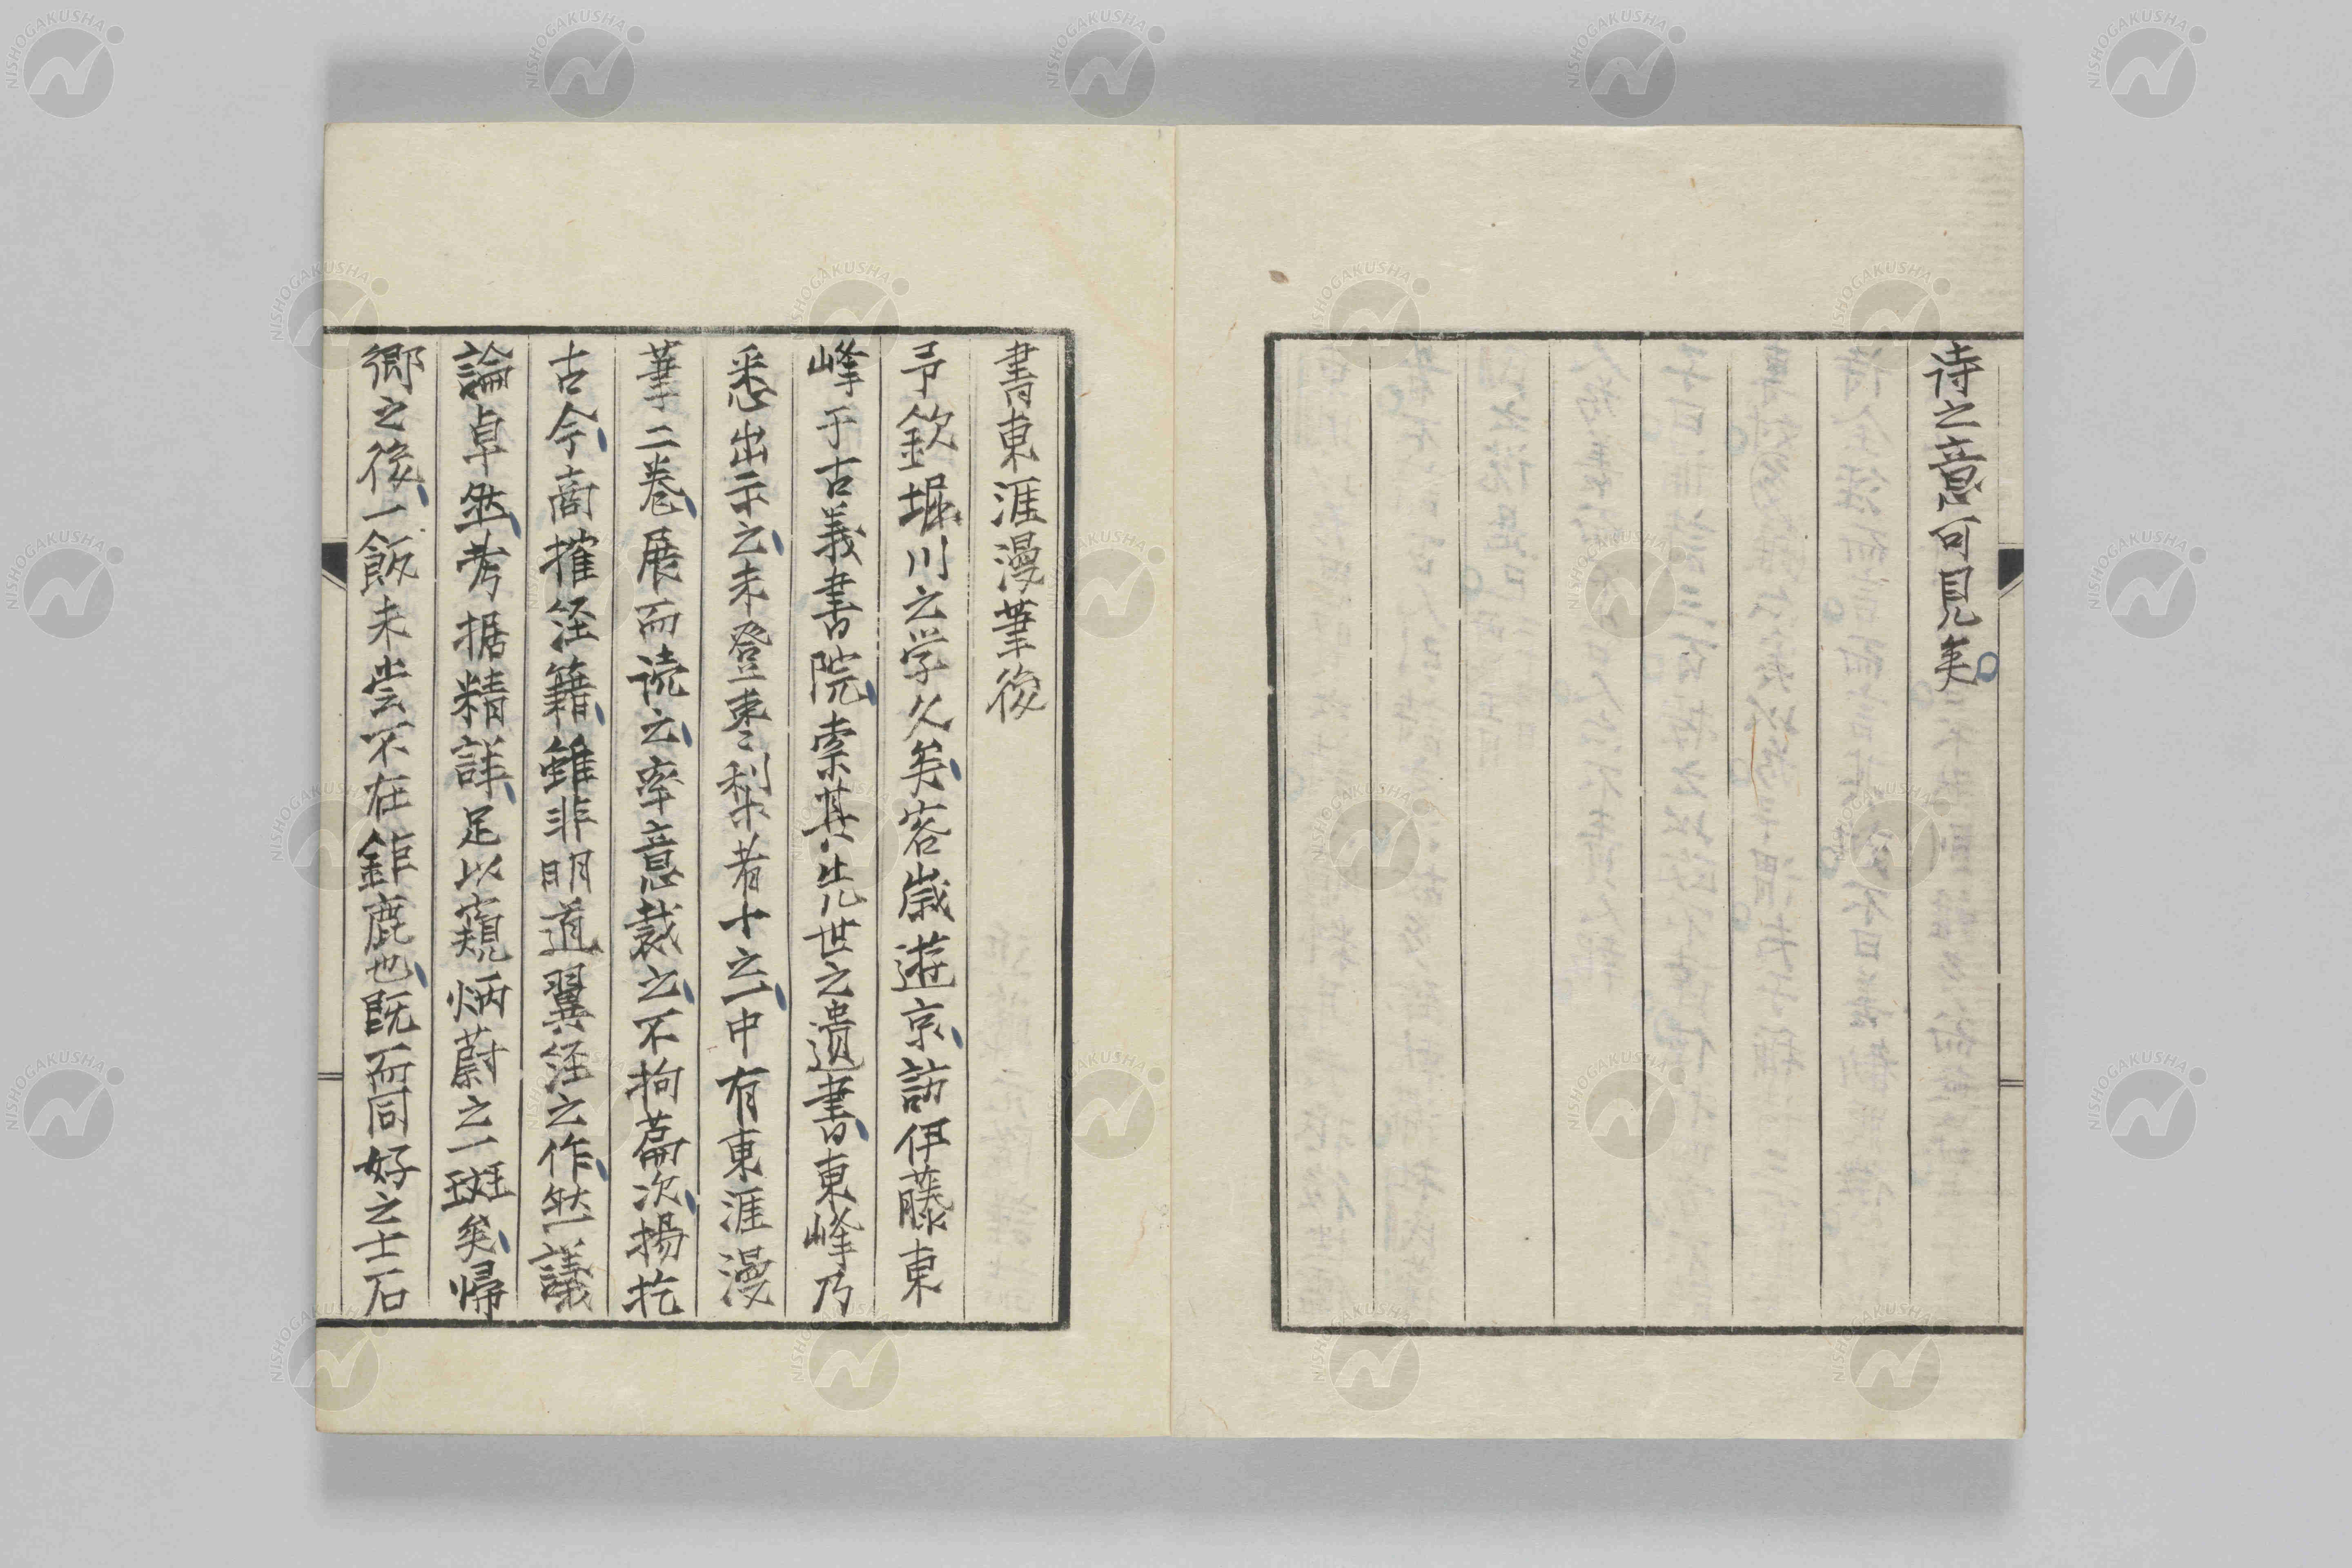 待之意可見矣
書東涯漫筆後
予欽堀川之学久矣客歳遊京訪伊藤東
峰于古義書院索其先世之遺書東峰乃
悉出示之未登棗梨者十之一中有東涯漫
筆二巻展而読之率意裁之不拘篇次揚扢
古今商搉経籍雖非明道翼経之作然議
論卓然考据精詳足以窺炳蔚之一斑矣帰
郷之後一飯未嘗不在鉅鹿也既而同好之士石